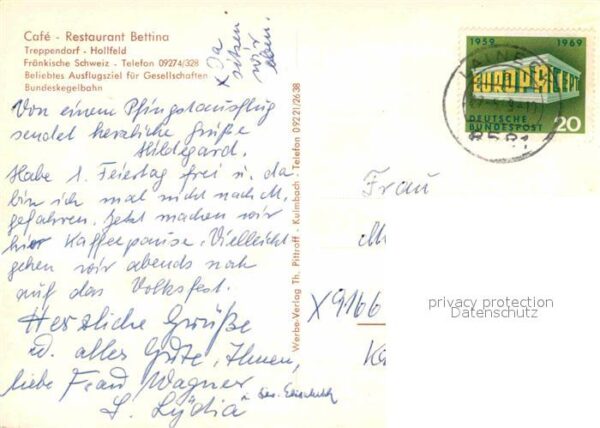 Café - Restaurant Bettina
Treppendorf - Hollfeld
Fränkische Schweiz - Telefon 09274/328
Beliebtes Ausflugsziel für Gesellschaften
Bundeskegelbahn
x Da
sitzen
wir
eben.
Von einem Pfingstausflug
sendet herzliche Grüße
Hildegard.
Habe 1. Feiertag frei u. da
bin ich mal nicht nach M.
gefahren. Jetzt machen wir
hier Kaffeepause. Vielleicht
gehen wir abends noch
auf das Volksfest.
Herzliche Grüße
u. alles Gute, Ihnen,
liebe Frau Wagner
Lydia
Werbe-Verlag Th. Pittroff - Kulmbach - Telefon 09221/2638
1959 1969
EUROPA CEPT
DEUTSCHE
BUNDESPOST 20
8581
Frau
X9166
privacy protection
Datenschutz